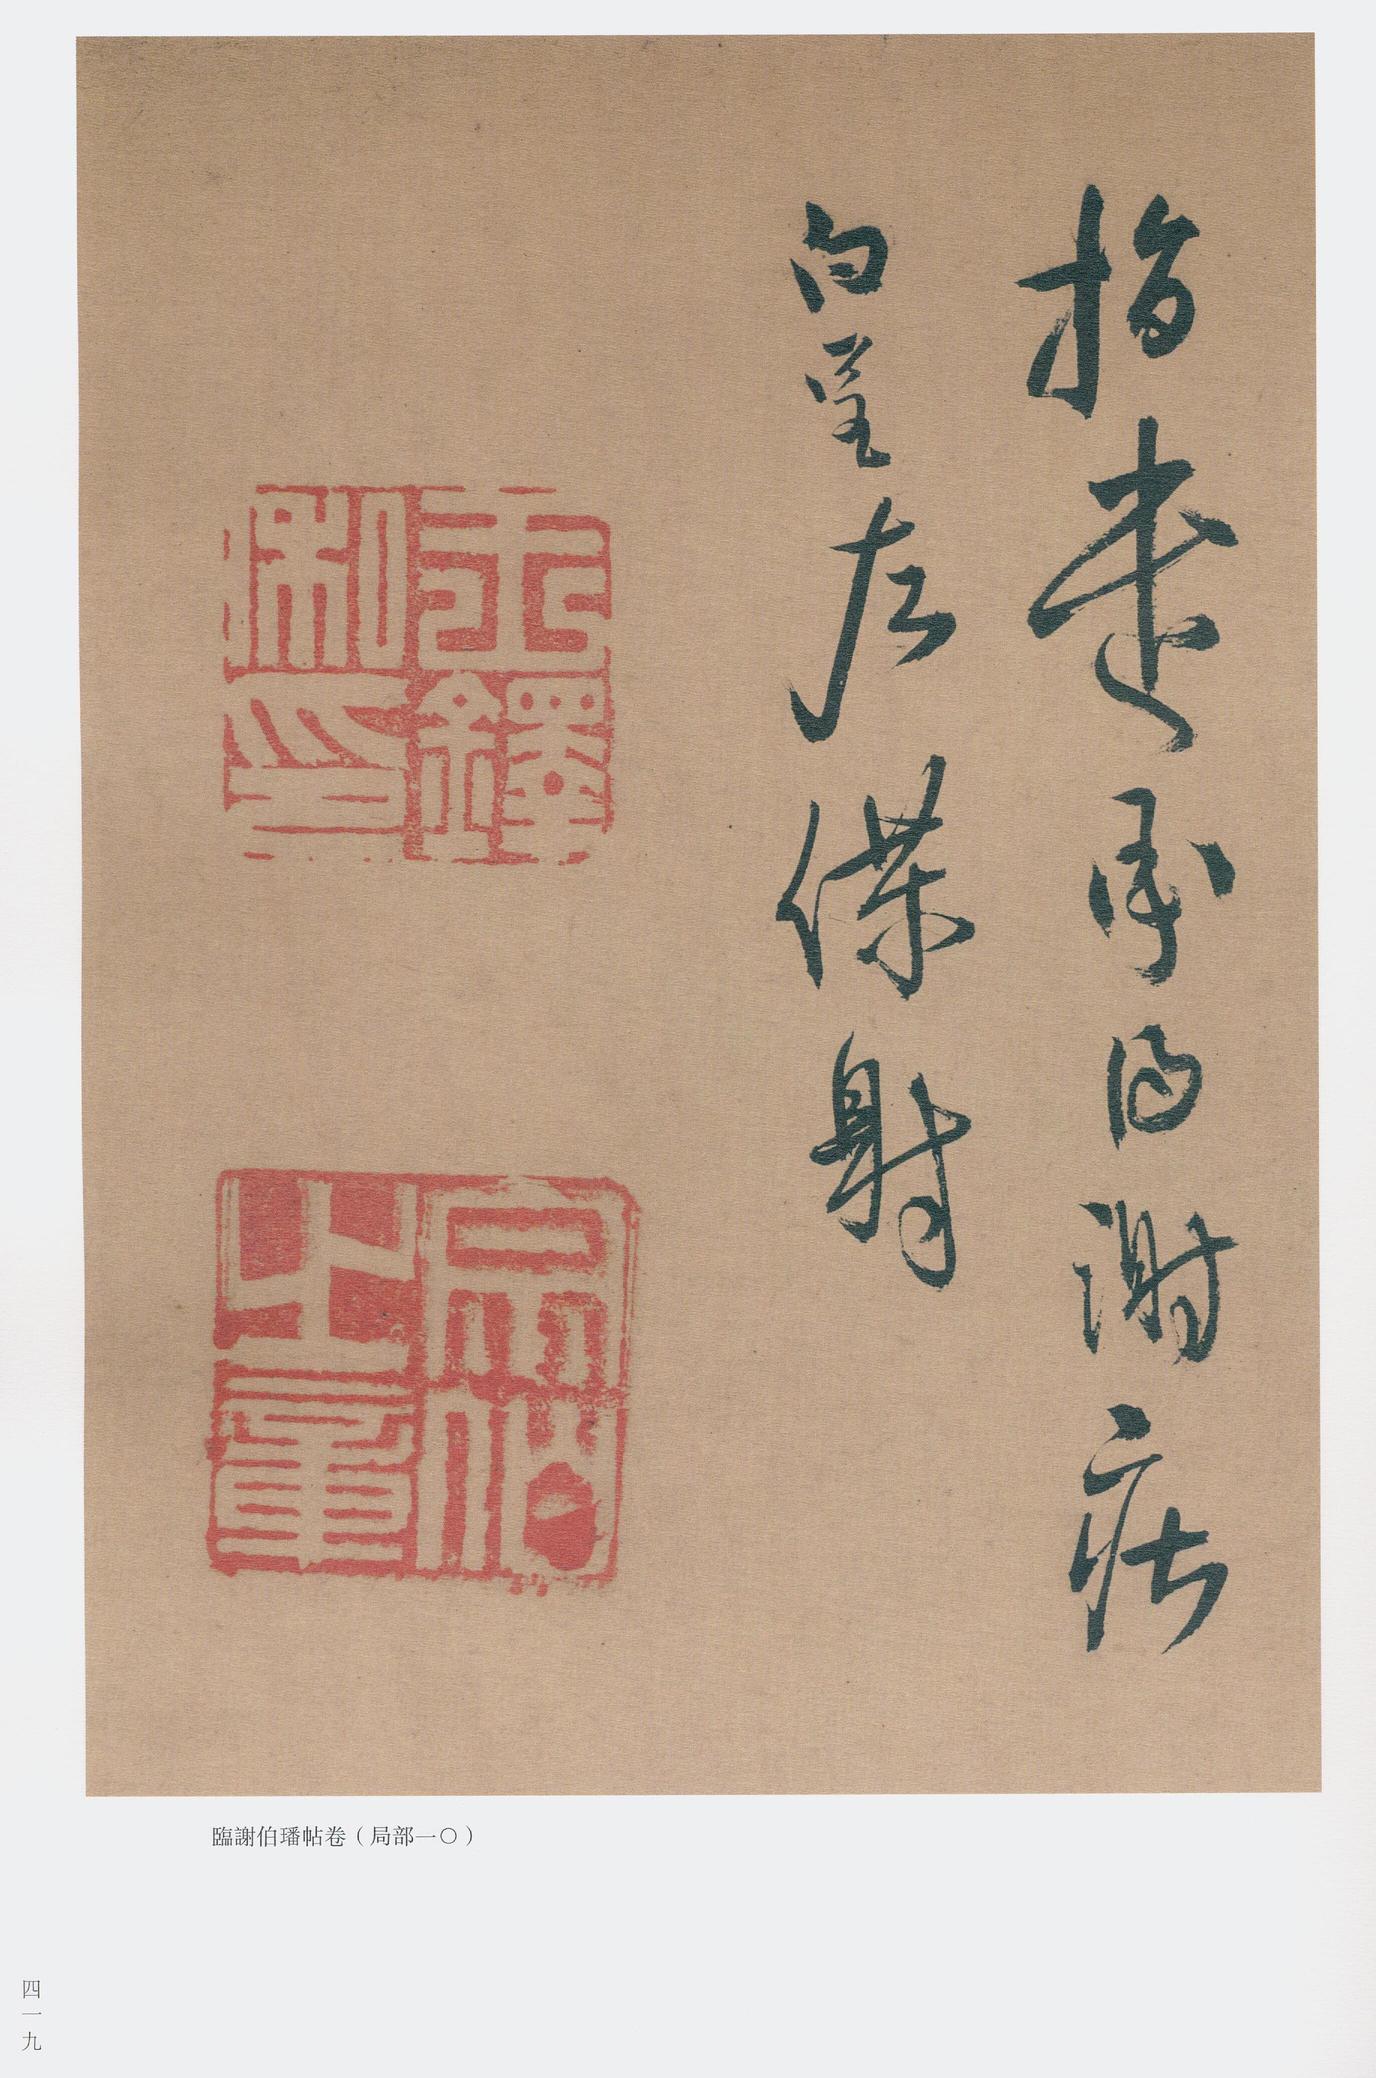 指遣承問謝莊
白呈左僕射
王鐸私印
宗伯之章
臨謝伯璠帖卷（局部一〇）
四一九